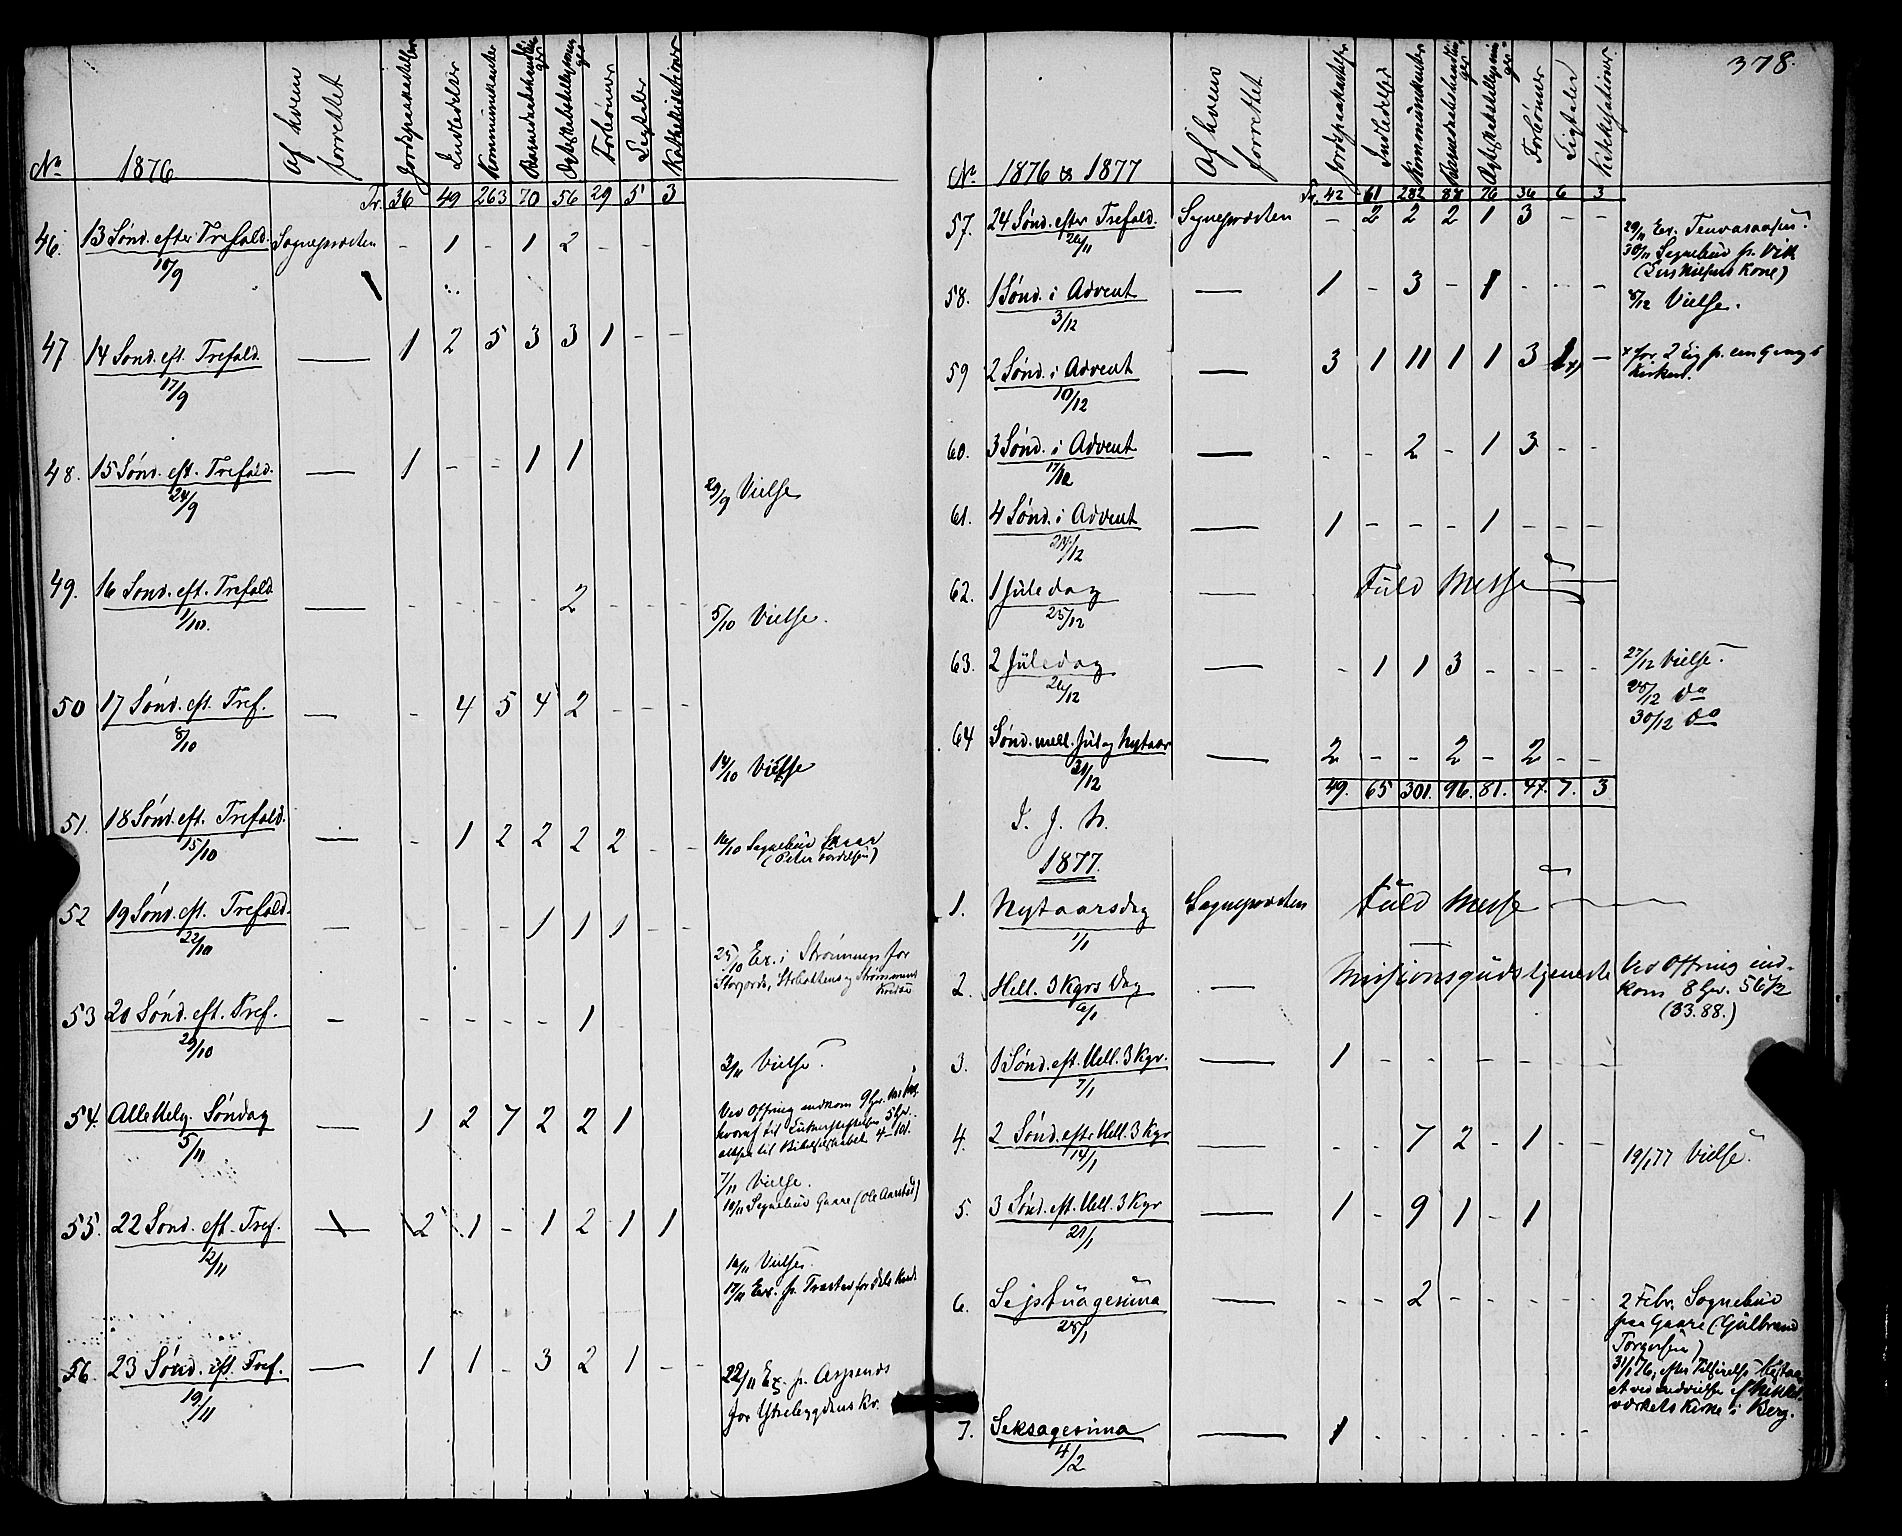 No. 1876 Af hvem forrettet Jordspaakastelser Indledelser Kommunikanter Forbønner Ligtaler
Tr. 36 49 263 70 56 29 5 3
46. 13 Sønd. efter Trefold. Sognepræsten - 1 - 1 2 - -
10/9
47 14 Sønd. eft. Trefold. — 1 2 5 3 3 1 - -
17/9
48. 15 Sønd. eft. Trefold. — 1 - - 1 1
24/9
29/9 Vielse
49. 16 Sønd. eft. Trefold — - - - - 2 - - -
1/10.
5/10 Vielse.
50 17 Sønd. eft. Tref. — - 4 5 4 2 - - -
8/10
14/10 Vielse
51. 18 Sønd. eft. Trefold. — - 1 2 2 2 2 - -
15/10
16/10 Sognebud
52 19 Sønd. eft. Trefold. — - - - 1 1 1 - -
22/10
25/10 Ex. i for
53 20 Sønd. eft. Tref. — - - - - 1 - - -
29/10
3/11 Vielse.
54. AlleHelg. Søndag — 1 2 7 2 2 1
5/11
Ved Offring indkom 9
hvoraf til
til
7/11 Vielse.
10/11 Sognebud Gaare (Ole Aarstad)
55. 22 Sønd. eft. Tref. — 2 1 - 1 2 1 1
12/11
16/11 Vielse.
17/11 Ex. p. for
56. 23 Sønd. eft. Tref. — 1 1 - 3 2 1 - -
19/11
22/11 Ex. p.
for Ytrebygdens Kr.
378.
No. 1876 & 1877 Af hvem forrettet Jordspaakastelser Indledelser Kommunikanter Forbønner Ligtaler
Tr. 42 61 282 88 76 36 6 3
57. 24 Sønd. efter Trefold. Sognepræsten - 2 2 2 1 3 - -
26/11
29/11 Ex.
30/11 Sognebud p. Vik
Kone)
58. 1 Sønd. i Advent — 1 - 3 - 1 - - -
3/12
8/12 Vielse.
59 2 Sønd. i Advent — 3 1 11 1 1 3 1 -
10/12
for 2 Lig p. en Gang i
Kirken.
60. 3 Sønd. i Advent — - - 2 - 1 3 - -
17/12
61. 4 Sønd. i Advent — 1 - - - 1 - - -
24/12
62. 1 Juledag — Fuld Messe
25/12
63. 2 Juledag — - 1 1 3 - - - -
26/12
27/12 Vielse.
28/12 do
30/12 do
64 Sønd. mell. Jul og Nytaar — 2 - - 2 - 2 - -
31/12
49. 65 301. 96. 81. 47. 7. 3
I. J. N.
1877.
1. Nytaarsdag Sognepræsten Fuld Messe
1/1
2. Hell. 3 Kgrs Dag — Missionsgudstjeneste
6/1
Ved Offring ind-
kom 8
(33.88.)
3. 1 Sønd. eft. Hell. 3 Kgr. — 1 - - - - - - -
7/1
4. 2 Sønd. efter Hell. 3 Kgr — - - 7 2 - 1 - -
14/1
19/1 77 Vielse.
5. 3 Sønd. eft. Hell. 3 Kgr — 1 - 9 1 - 1
21/1
6. Septuagesima — - - 2 - - - - -
28/1
2 Febr. Sognebud
paa Gaare (Gulbrand
Torgersen)
31/1 76, efter
et ved Indvielse af
værkets Kirke i Berg.
7. Seksagesima — 1 - - - - - - -
4/2